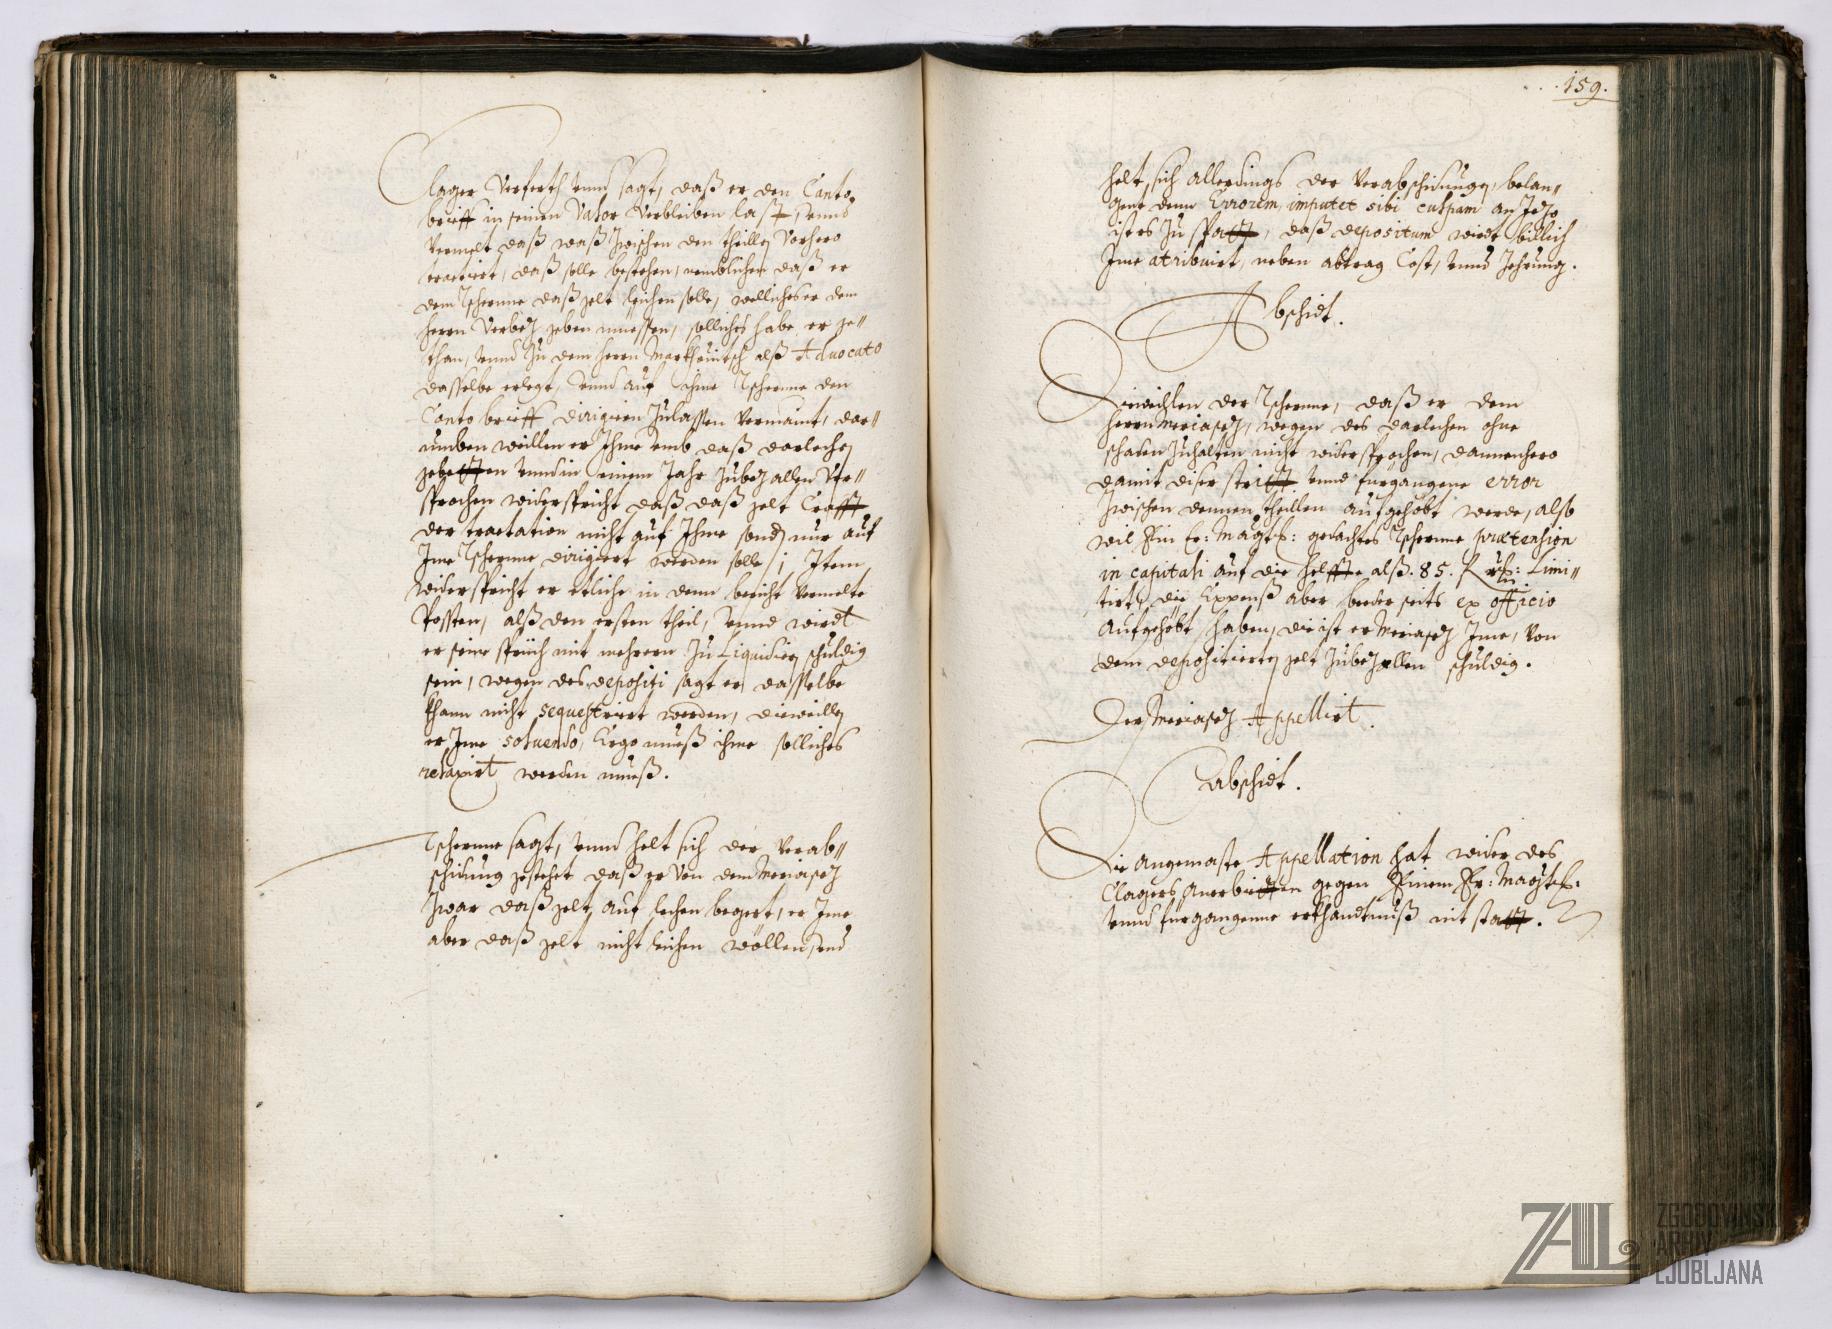 Clager Verferth vnnd sagt, daß er den Canto
brieff in seinen Valor Verbleiben last, vnnd
Vermelt daß waß zwischen den theillen Vorhero
tractirt, daß solle bestehen, nemblichen daß er
dem Tschernne daß gelt leichen solle, welliches er dem
herrn Verbez geben muessen, solliches habe er ge//
than, vnnd zu dem herrn Markhouitsch alß Aduocato
dasselbe erlegt, vnnd auf ihme Tschernne den
Canto brieff dirigiren zulassen Vermaint, dar//
umben weillen er Ihme vmb daß darlechen
gebetten vnnd in einem Jahr zubezallen Ver//
sprochen widerspricht daß daß gelt Crafft
der tractation nicht auf Ihme sonder nur auf
Ime Tschernne dirigiert werden solle; Item
widerspricht er etliche in denn bericht Vermelte
Posten, alß den ersten theil, vnnd wierdt
er seine sprüch mit mehrern zu Liquidiern schuldig
sein, wegen des depositi sagt er, dasselbe
khann nicht sequestriert werden, dieweillen
er Ime soluendo, Ergo mueß ihme solliches
relaxirt werden mueß.
Tschernne sagt, vnnd helt sich der Verab//
schidung gestehet daß er Von dem Meriasez
zwar daß gelt auf lechen begert, er Ime
aber daß gelt nicht leichen wöllen, vnd
159.
helt sich allerdings der Verabschidungen, belan//
gent denn Errorem, imputet sibi culpam an Jezo
ist es zu spatt, daß depositum wierdt billich
Ime atribuirt, neben abtrag Cost, vnnd Zehrung.
Abschidt.
Dieweillen der Tschernne, daß er dem
herrn Meriasez, wegen des darlechen ohne
schaden Zuhalten nicht widersprochen, dannenhero
damit diser stritt vnnd fürgangene error
zwischen dennen theillen aufgehebt werde, alß
wil Ein Er: Magt: gedachtes Tschernne prætension
in capitali auf die helffte alß. 85. R: Limi//
tirt, die Expenß aber beederseits ex officio
aufgehebt haben, die ist er Meriasez Ime, Von
dem depositierten gelt zubezallen schuldig.
Der Meriasez Appellirt.
abschidt.
Die angemaste Appellation hat wider des
Clagers anerbietten gegen Einem Er: Magt:
vnnd fürgangenne erkhandtnuß nit statt.
ZAL
ZGODOVINSKI
ARHIV
LJUBLJANA